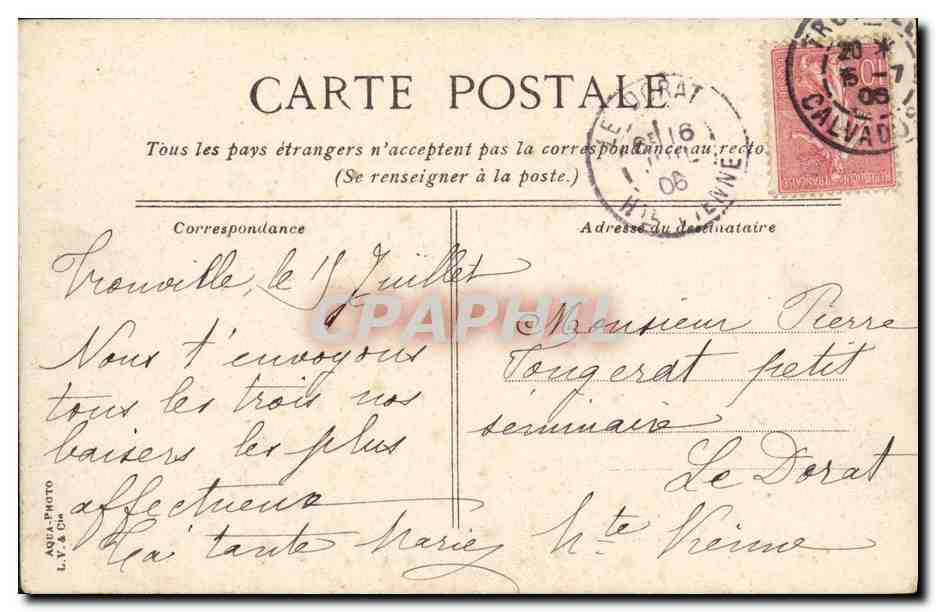 CARTE POSTALE
Tous les pays étrangers n'acceptent pas la correspondance au recto
(Se renseigner à la poste.)
Correspondance
Adresse du destinataire
Trouville, le 15 Juillet
Nous t'envoyons
tous les trois nos
baisers les plus
affectueux
Ta tante Marie
Monsieur Pierre
Fougerat petit
séminaire
Le Dorat
Hte Vienne
LE DORAT
16
06
HTE VIENNE
20 *
15 - 7
06
CALVADOS
10
REPUBLIQUE FRANÇAISE
AQUA-PHOTO
L. V. & Cie
CPAPHIL